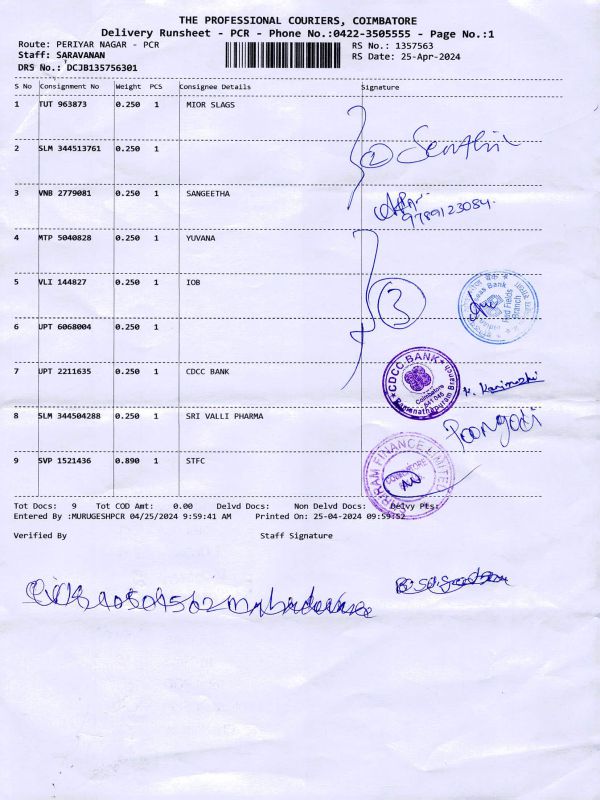 THE PROFESSIONAL COURIERS, COIMBATORE
Delivery Runsheet - PCR - Phone No.:0422-3505555 - Page No.:1
Route: PERIYAR NAGAR - PCR
RS No.: 1357563
Staff: SARAVANAN
RS Date: 25-Apr-2024
DRS No.: DCJB135756301
S No Consignment No Weight PCS Consignee Details Signature
1 TUT 963873 0.250 1 MIOR SLAGS
2 SLM 344513761 0.250 1
2 Senthil
3 VNB 2779081 0.250 1 SANGEETHA
9789123084.
4 MTP 5040828 0.250 1 YUVANA
5 VLI 144827 0.250 1 IOB
3
Red Fields
Branch
6 UPT 6068004 0.250 1
7 UPT 2211635 0.250 1 CDCC BANK
CDCC BANK
Coimbatore
641 045
Ramanathapuram Branch
8 SLM 344504288 0.250 1 SRI VALLI PHARMA
Poongodi
9 SVP 1521436 0.890 1 STFC
SHRIRAM FINANCE LIMITED
COIMBATORE
Tot Docs: 9 Tot COD Amt: 0.00 Delvd Docs: Non Delvd Docs: Delvy Pts:
Entered By :MURUGESHPCR 04/25/2024 9:59:41 AM Printed On: 25-04-2024 09:59:52
Verified By Staff Signature